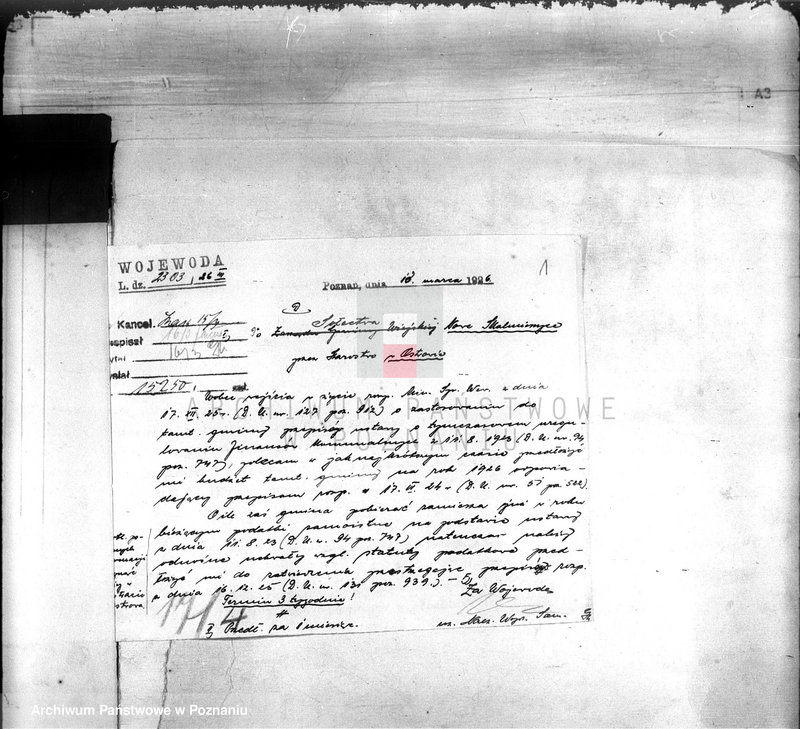 A3
WOJEWODA
L. dz. 2303, 26 III
Poznań, dnia 10. marca 1926
1
Kancel.
episał
ytał
ysłał
15250
Do Sołectwa
Zarządu Gminy Wiejskiej Nowe Skalmierzyce
przez Starostwo w Ostrowie
Wobec wejścia w życie rozp. Min. Spr. Wew. z dnia
17. XII. 25 r. (D. U. nr. 127 poz. 912) o zastosowaniu do
tamt. gminy przepisów ustawy o tymczasowem uregu-
lowaniu finansów komunalnych z 11. 8. 1923 (D. U. nr. 94
poz. 747), polecam w jaknajkrótszym czasie przedłożyć
mi budżet tamt. gminy na rok 1926 odpowia-
dający przepisom rozp. z 17. VI. 24 r. (D. U. nr. 51 poz. 522)
O ile zaś gmina pobierać zamierza już w roku
bieżącym podatki samoistne na podstawie ustawy
z dnia 11. 8. 23 (D. U. nr. 94 poz. 747) natenczas należy
odnośne uchwały wzgl. statuty podatkowe przed-
łożyć mi do zatwierdzenia przestrzegając przepisów rozp.
z dnia 16. 12. 25 (D. U. nr. 131 poz. 939). –
Termin 3 tygodnie!
Za Wojewodę
Przedł. za 1 miesiąc.
nz. Nacz. Wydz. Sam.
ARCHIWUM PAŃSTWOWE
W POZNANIU
Archiwum Państwowe w Poznaniu